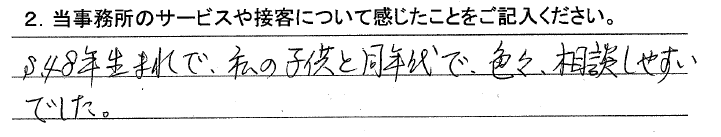 2．当事務所のサービスや接客について感じたことをご記入ください。
S48年生まれで、私の子供と同年代で、色々、相談しやすい
でした。